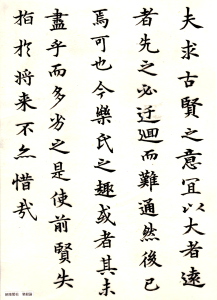 夫求古賢之意宜以大者遠
者先之必迂迴而難通然後已
焉可也今樂氏之趣或者其未
盡乎而多劣之是使前賢失
指於将来不亦惜哉